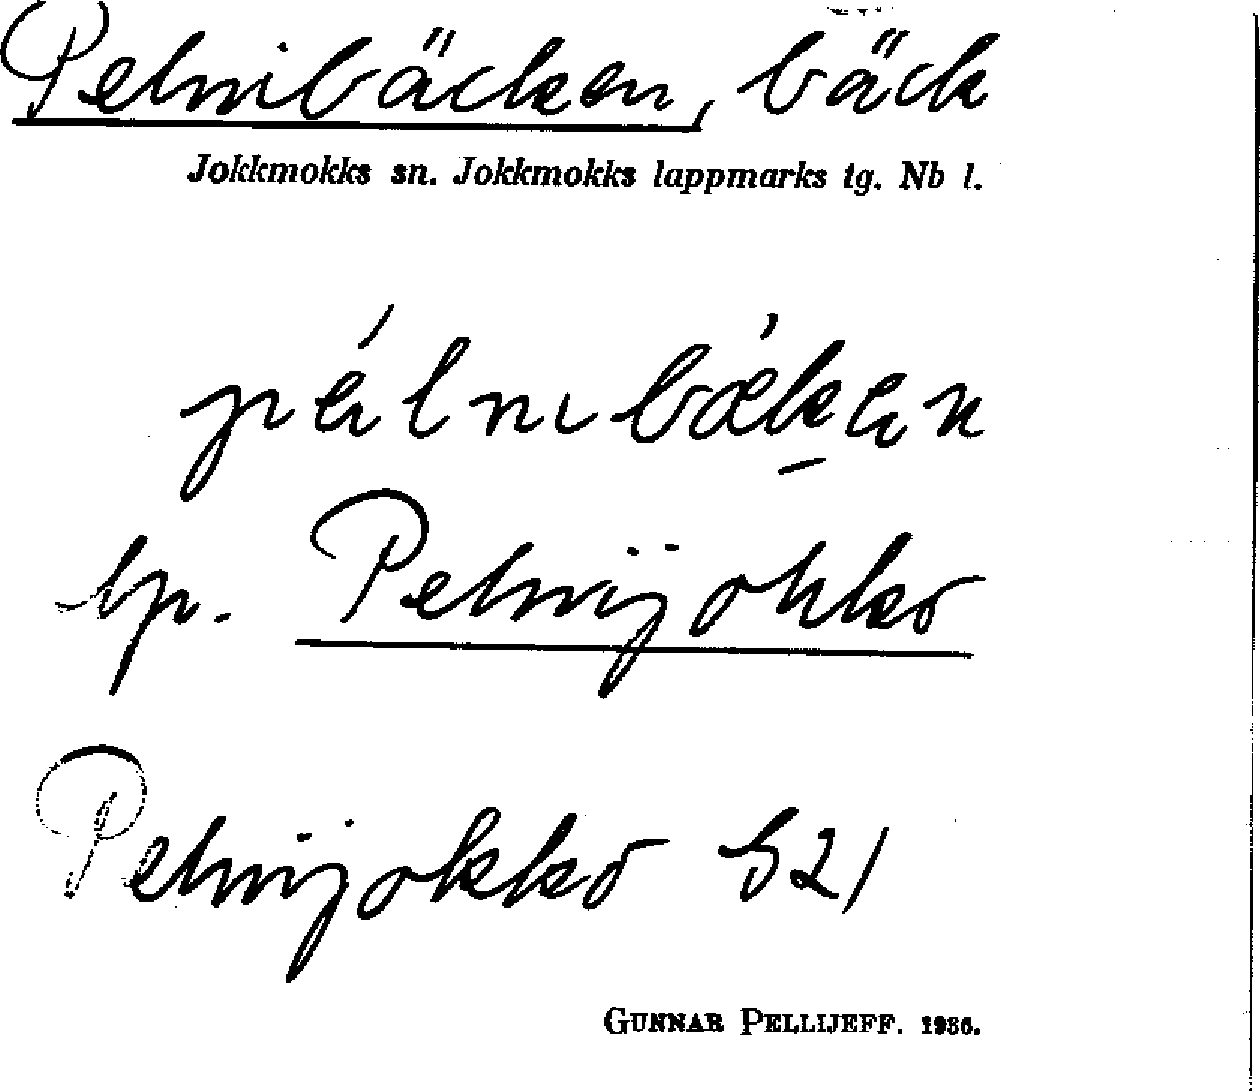 Pelnibäcken, bäck
Jokkmokks sn. Jokkmokks lappmarks tg. Nb l.
pélnibæ̀ken
lp. Pelnijokko
Pelnijokko S21
GUNNAR PELLIJEFF. 1936.